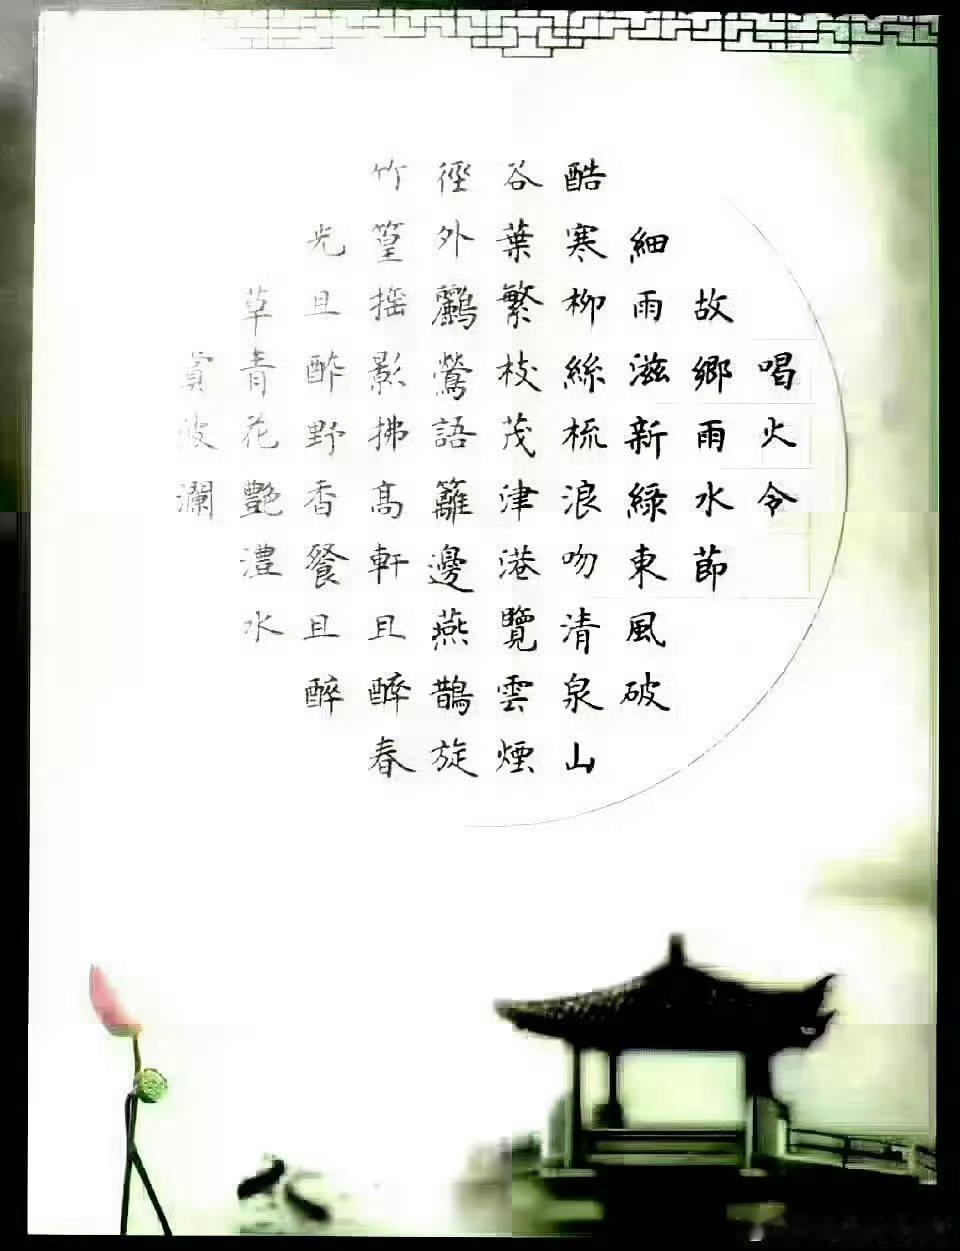 喝火令
故鄉雨水節
細雨滋新綠東風破
酷寒柳絲梳浪吻清泉山
谷葉繁枝茂津港覽雲煙
徑外鸝鶯語籬邊燕鵲旋
竹篁搖影拂高軒且醉春
光且酢野香餐且醉
草青花艷澧水
賞波瀾